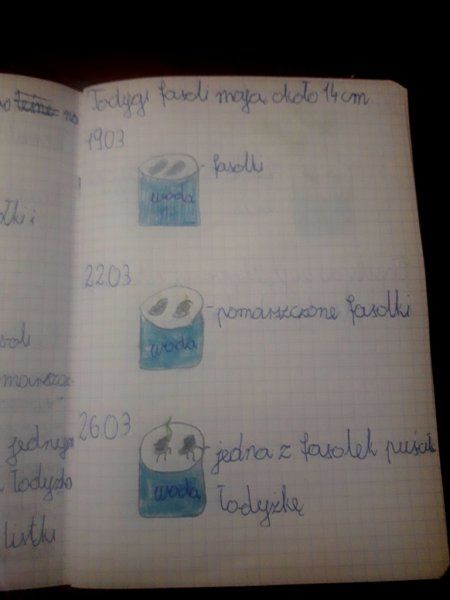 no
Łodygi fasoli mają około 14 cm
19.03
fasolki
woda
22.03
pomarszczone fasolki
woda
26.03
jedna z fasolek puściła
łodyżkę
woda
jednej
łodyżko
listki